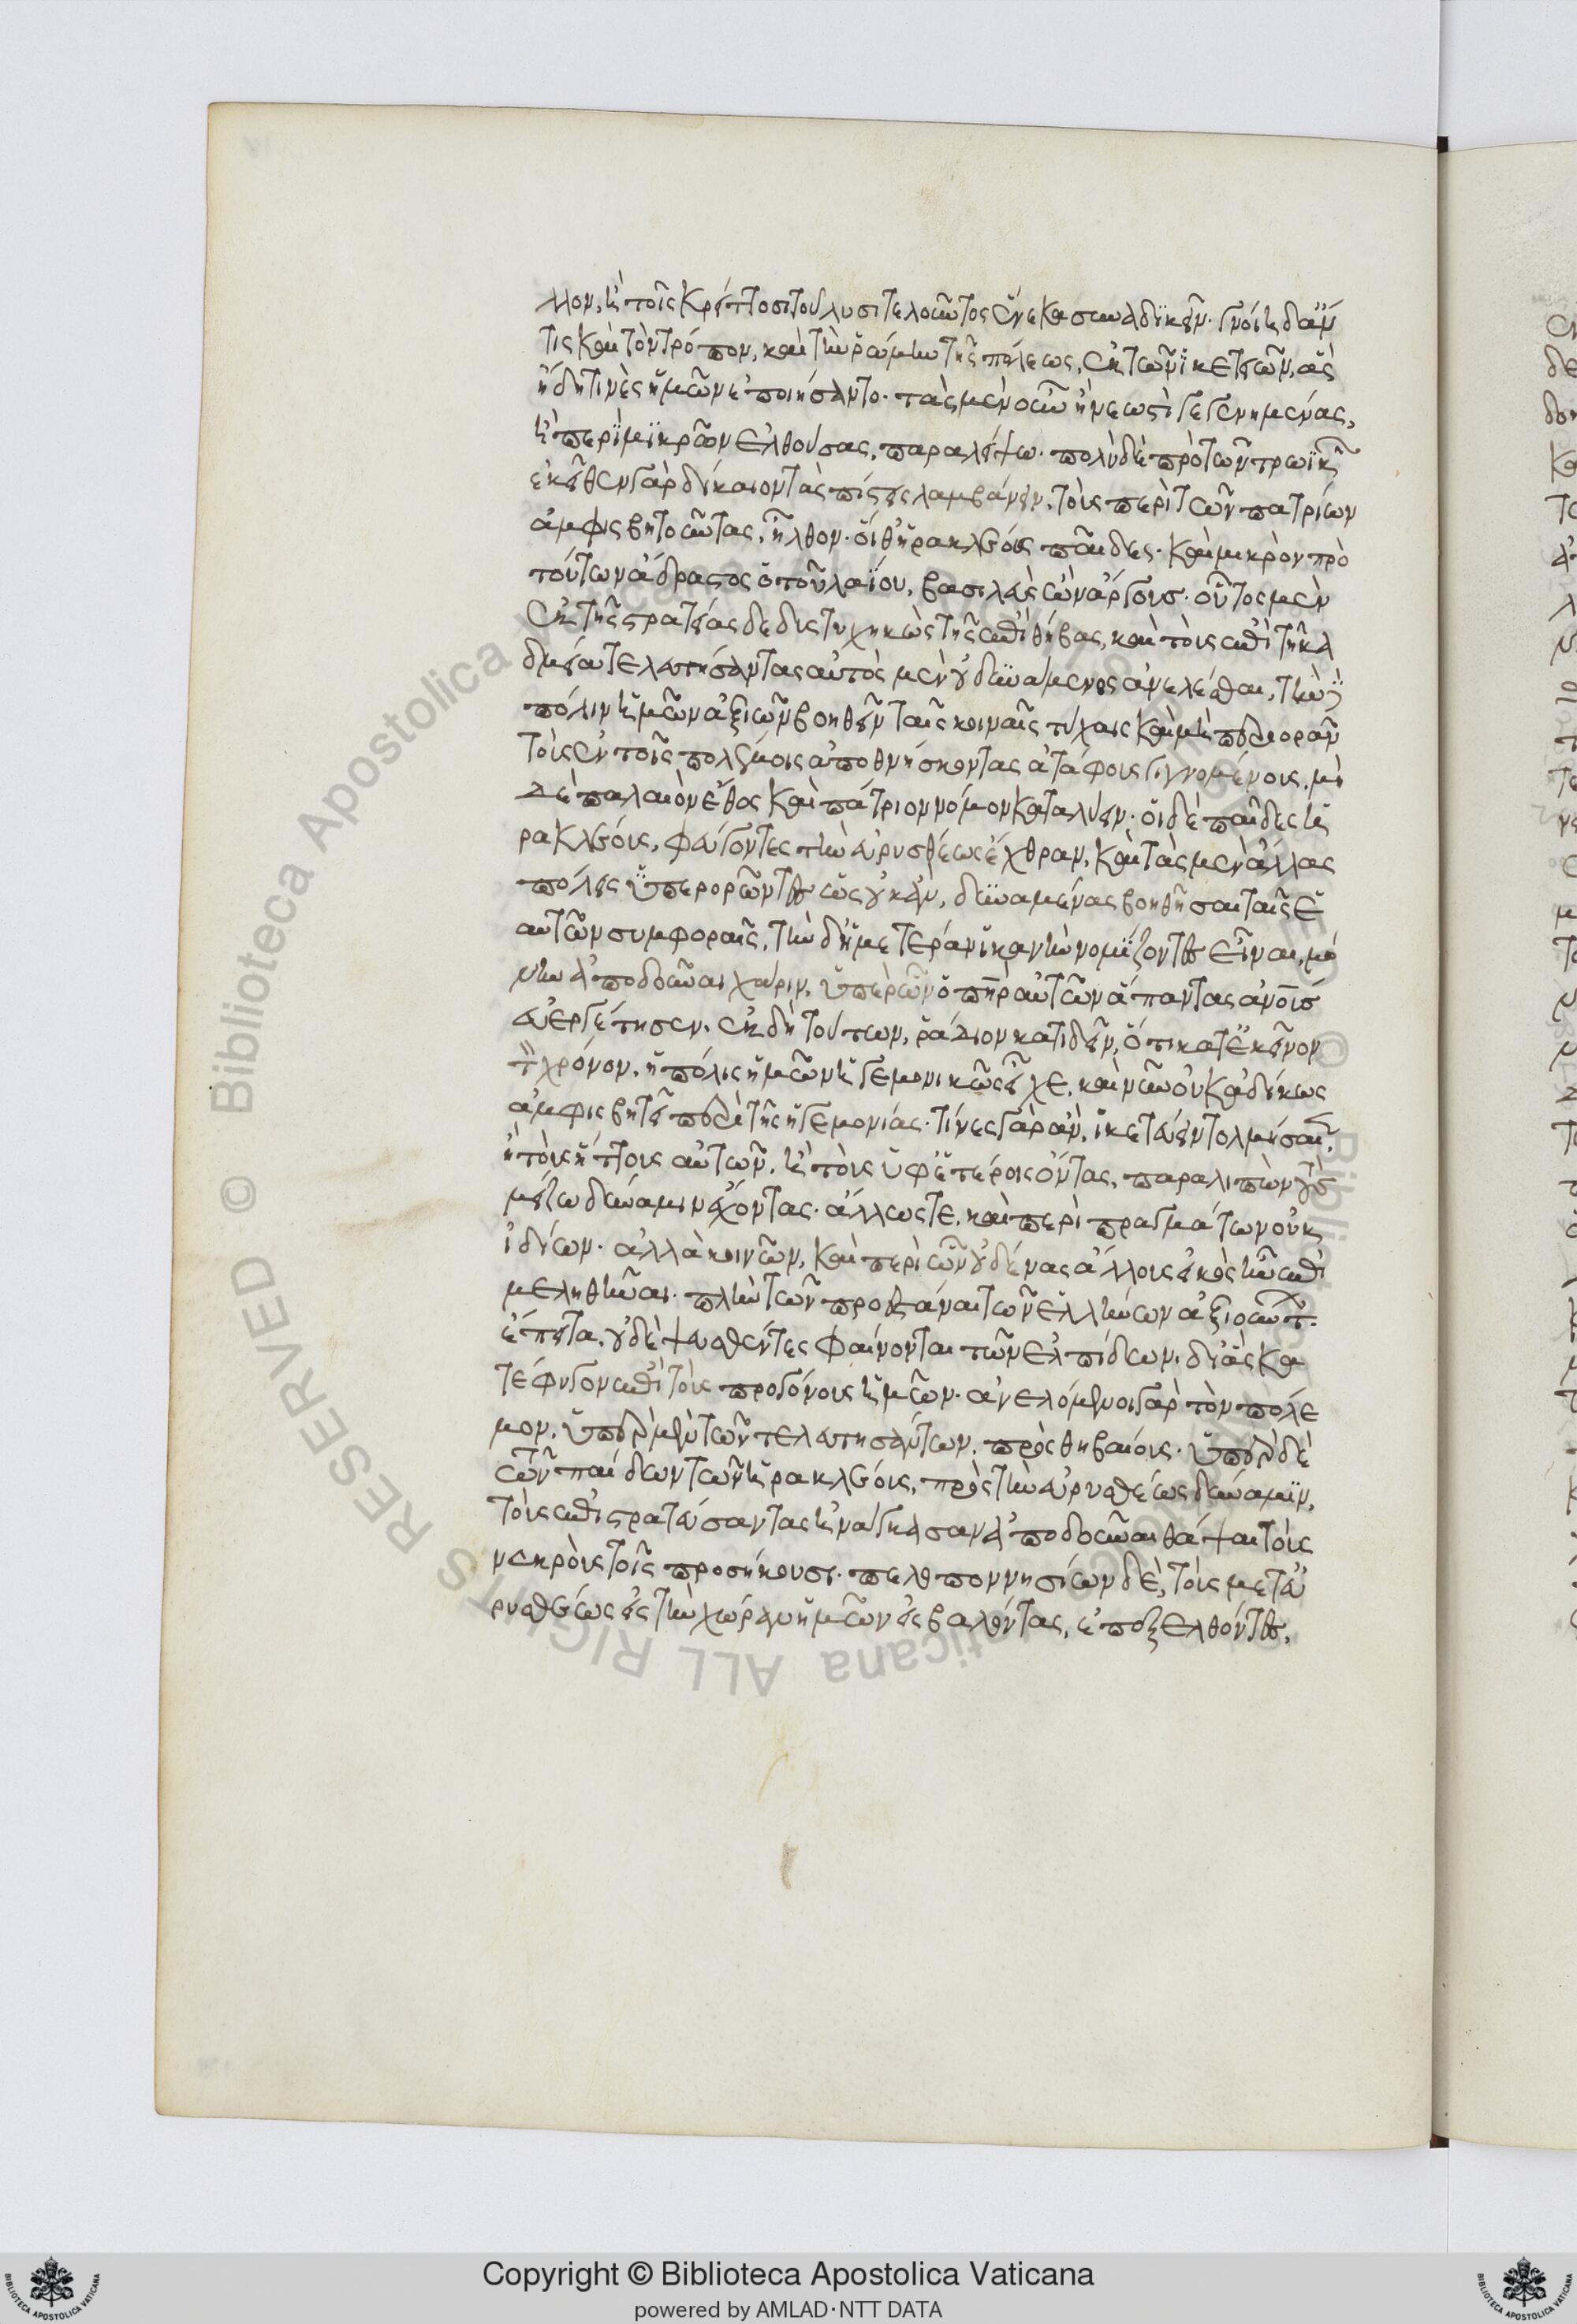 λλον, ἢ τοῖς κρείττοσι τοῦ λυσιτελοῦντος ἕνεκα συναδικεῖν. γνοίη δ' ἄν
τις καὶ τὸν τρόπον, καὶ τὴν ῥώμην τῆς πόλεως, ἐκ τῶν ἱκετειῶν, ἃς
ἤδη τινὲς ἡμῶν ἐποιήσαντο. τὰς μὲν οὖν ἢ νεωστὶ γεγενημένας,
ἢ περὶ μικρῶν ἐλθούσας, παραλείψω. πολὺ δὲ πρὸ τῶν τρωϊκῶν
ἐκεῖθεν γὰρ δίκαιον τὰς πίστεις λαμβάνειν, τοὺς περὶ τῶν πατρίων
ἀμφισβητοῦντας, ἦλθον. οἵ θ' ἡρακλέους παῖδες. καὶ μικρὸν πρὸ
τούτων ἄδραστος ὁ τοῦ λαΐου, βασιλεὺς ὢν ἄργους. οὗτος μὲν
ἐκ τῆς στρατείας δεδυστυχηκὼς τῆς ἐπὶ θήβας, καὶ τοὺς ἐπὶ τῇ κα
δμείᾳ τελευτήσαντας αὐτὸς μὲν οὐ δυνάμενος ἀνελέσθαι, τὴν δὲ
πόλιν ἡμῶν ἀξιῶν βοηθεῖν ταῖς κοιναῖς τύχαις καὶ μὴ περιορᾶν
τοὺς ἐν τοῖς πολέμοις ἀποθνήσκοντας ἀτάφους γιγνομένους. μὴ
δὲ παλαιὸν ἔθος καὶ πάτριον νόμον καταλύειν. οἱ δὲ παῖδες ἡ
ρακλέους, φεύγοντες τὴν εὐρυσθέως ἔχθραν, καὶ τὰς μὲν ἄλλας
πόλεις ὑπερορῶντες ὡς οὐκ ἂν, δυναμένας βοηθῆσαι ταῖς ἑ
αυτῶν συμφοραῖς, τὴν δ' ἡμετέραν ἱκανὴν νομίζοντες εἶναι, μό
νην ἀποδοῦναι χάριν, ὑπὲρ ὧν ὁ πατὴρ αὐτῶν ἅπαντας ἀνους
εὐεργέτησεν. ἐκ δὴ τούτων, ῥᾴδιον κατιδεῖν, ὅτι κατ' ἐκεῖνον
τὸν χρόνον, ἡ πόλις ἡμῶν ἡγεμονικῶς εἶχε, καὶ νῦν οὐκ ἀδίκως
ἀμφισβητεῖ περὶ τῆς ἡγεμονίας. τίνες γὰρ ἂν, ἱκετεύειν τολμήσαιεν
ἢ τοὺς ἥττους αὐτῶν, ἢ τοὺς ὑφ' ἑτέροις ὄντας, παραλιπὼν τοὺς
μείζω δύναμιν ἔχοντας. ἄλλως τε, καὶ περὶ πραγμάτων οὐκ
ἰδίων. ἀλλὰ κοινῶν, καὶ περὶ ὧν οὐδένας ἄλλους εἰκὸς ἦν ἐπι
μεληθῆναι. πλὴν τῶν προεστάναι τῶν ἑλλήνων ἀξιούντων.
ἔπειτα, οὐδὲ ψευσθέντες φαίνονται τῶν ἐλπίδων, δι' ἃς κα
τέφυγον ἐπὶ τοὺς προγόνους ἡμῶν. ἀνελόμενοι γὰρ τὸν πόλε
μον, ὑπὲρ μὲν τῶν τελευτησάντων, πρὸς θηβαίους. ὑπὲρ δὲ
τῶν παίδων τῶν ἡρακλέους, πρὸς τὴν εὐρυσθέως δύναμιν,
τοὺς ἐπιστρατεύσαντας ἠνάγκασαν ἀποδοῦναι θάψαι τοὺς
νεκροὺς τοῖς προσήκουσι. πελοποννησίων δὲ, τοὺς μετ' εὐ
ρυσθέως εἰς τὴν χώραν ἡμῶν εἰσβαλόντας, ἐπεξελθόντες,